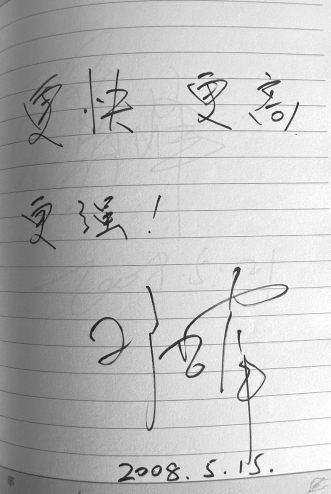 更快 更高
更强!
2008.5.15.